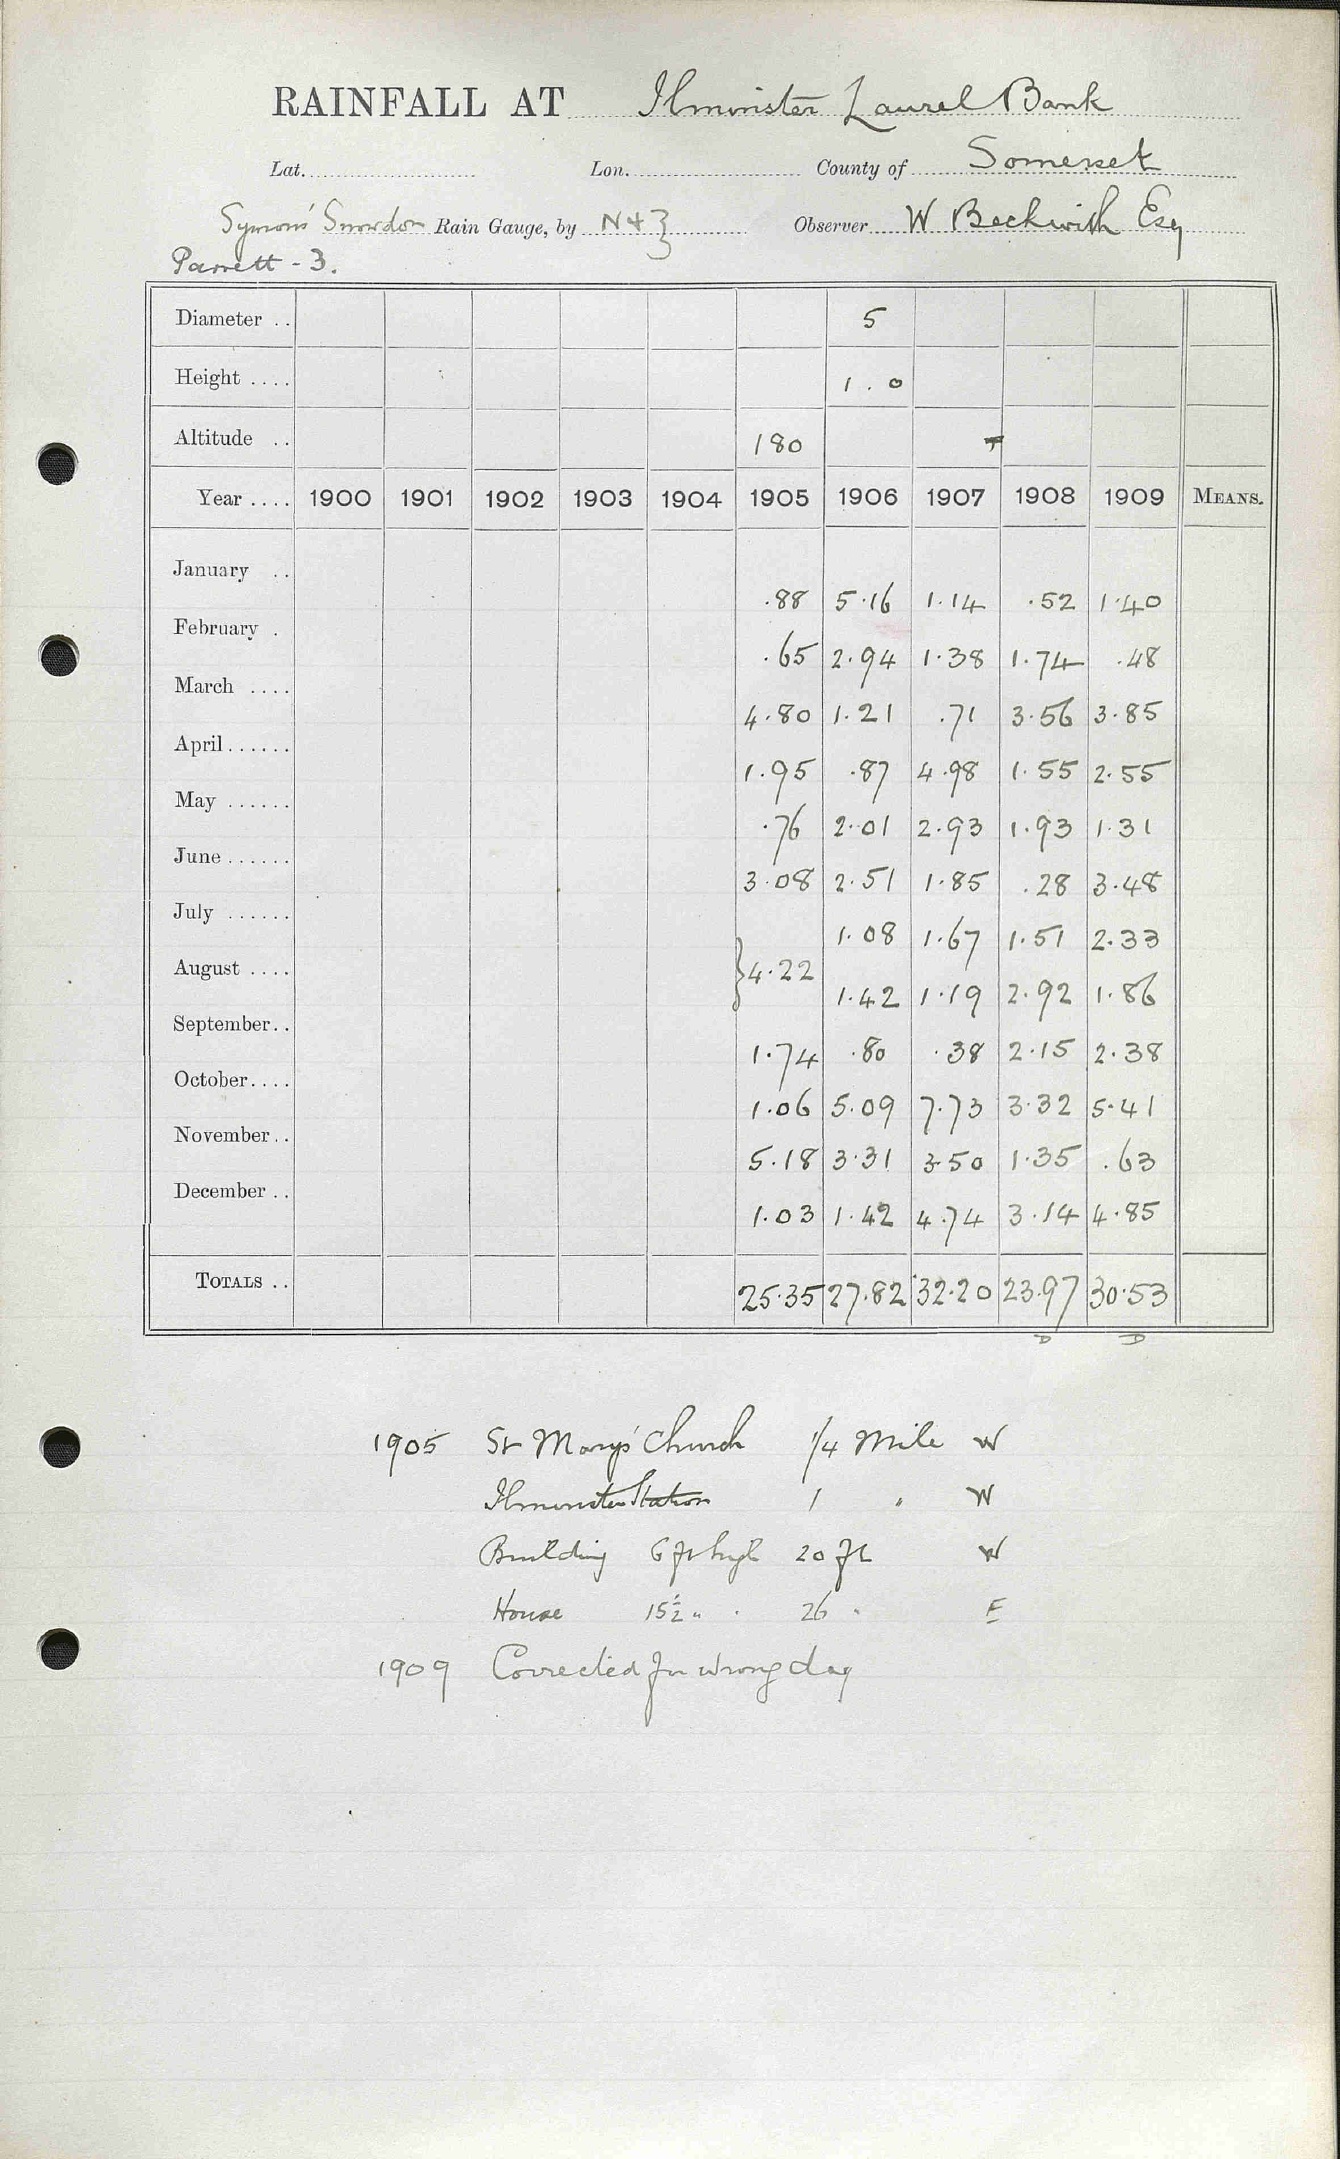 RAINFALL AT Ilminster Laurel Bank
Lat. Lon. County of Somerset
Symons' Snowdon Rain Gauge, by N & Z Observer W Beckwith Esq
Parrett - 3.
Diameter .. 5
Height .... 1.0
Altitude .. 180
Year .... 1900 1901 1902 1903 1904 1905 1906 1907 1908 1909 MEANS.
January .. .88 5.16 1.14 .52 1.40
February . .65 2.94 1.38 1.74 .48
March .... 4.80 1.21 .71 3.56 3.85
April ...... 1.95 .87 4.98 1.55 2.55
May ...... .76 2.01 2.93 1.93 1.31
June ...... 3.08 2.51 1.85 .28 3.48
July ...... 1.08 1.67 1.51 2.33
August .... }4.22 1.42 1.19 2.92 1.86
September.. 1.74 .80 .38 2.15 2.38
October.... 1.06 5.09 7.73 3.32 5.41
November.. 5.18 3.31 3.50 1.35 .63
December .. 1.03 1.42 4.74 3.14 4.85
TOTALS .. 25.35 27.82 32.20 23.97 30.53
D D
1905 St Mary's Church 1/4 Mile W
Ilminster Station 1 " W
Building 6 ft high 20 ft W
House 15½ " " 26 " E
1909 Corrected for wrong day